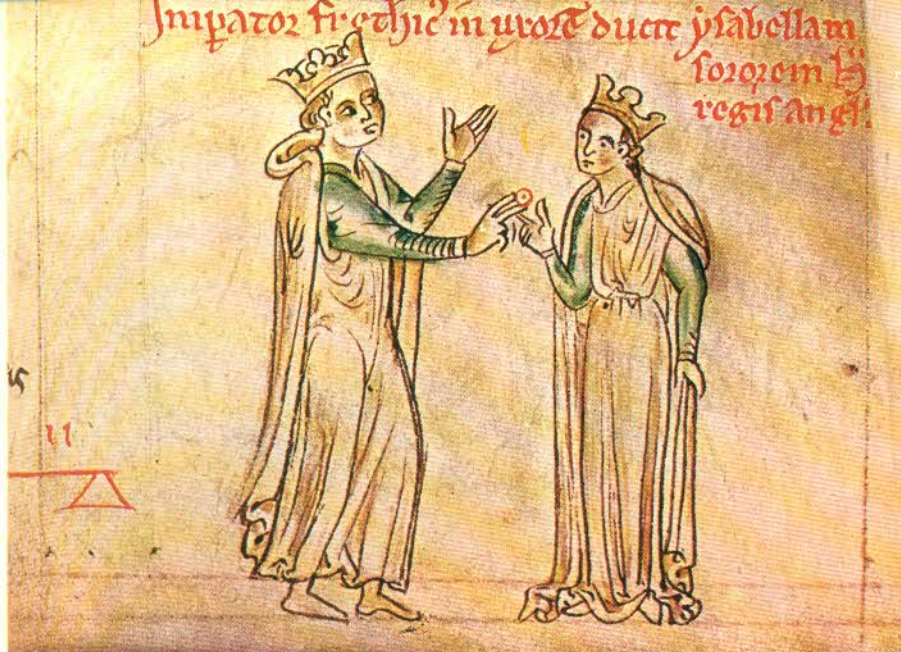 Imp̱ator frethic᾽ in uxorē ducit ysabellam
sororem H̄
regis angl᾽.
11